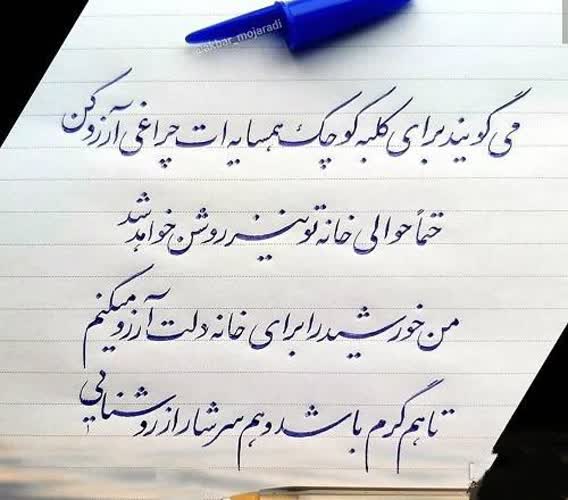 aakbar_mojaradi
می گویند برای کلبه کوچک همسایه ات چراغی آرزو کن
حتماً حوالی خانه تو نیز روشن خواهد شد
من خورشید را برای خانه دلت آرزو میکنم
تا هم گرم باشد و هم سرشار از روشنایی